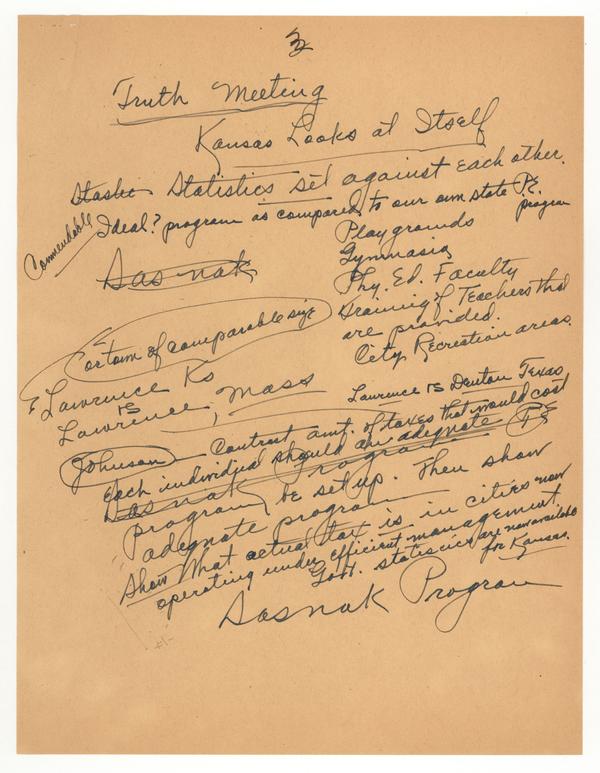 Truth Meeting
Kansas Looks at Itself
Statistics set against each other.
Commendable
Ideal? program as compared to our own state P.E. program
Playgrounds
Gymnasia
Phy. Ed. Faculty
Training of Teachers that
are provided.
City Recreation areas.
Sasnak
or town of comparable size
Lawrence Ks
vs
Lawrence, Mass
Lawrence vs Denton Texas
Johnson – Contrast amt. of taxes that would cost
each individual should an adequate P.E.
Sasnak Program
program be set up. Then show
adequate program
Show What actual tax is in cities now
operating under efficient management.
Govt. statiscics are now available
for Kansas.
Sasnak Program